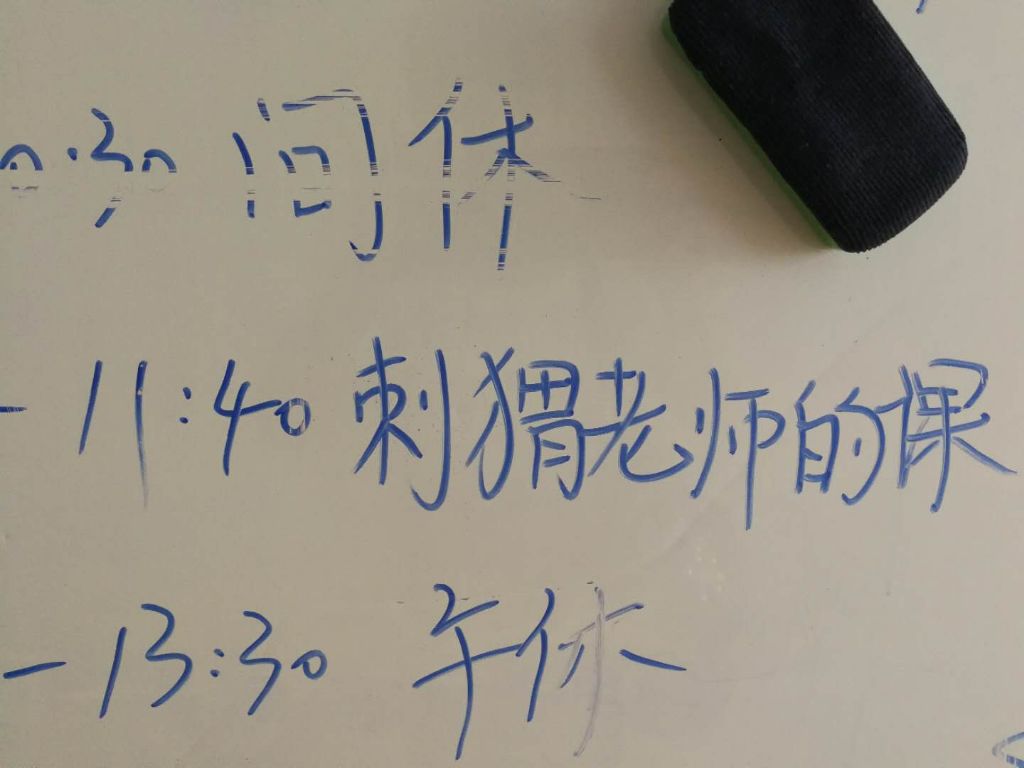 0:30 间休
- 11:40 刺猬老师的课
- 13:30 午休